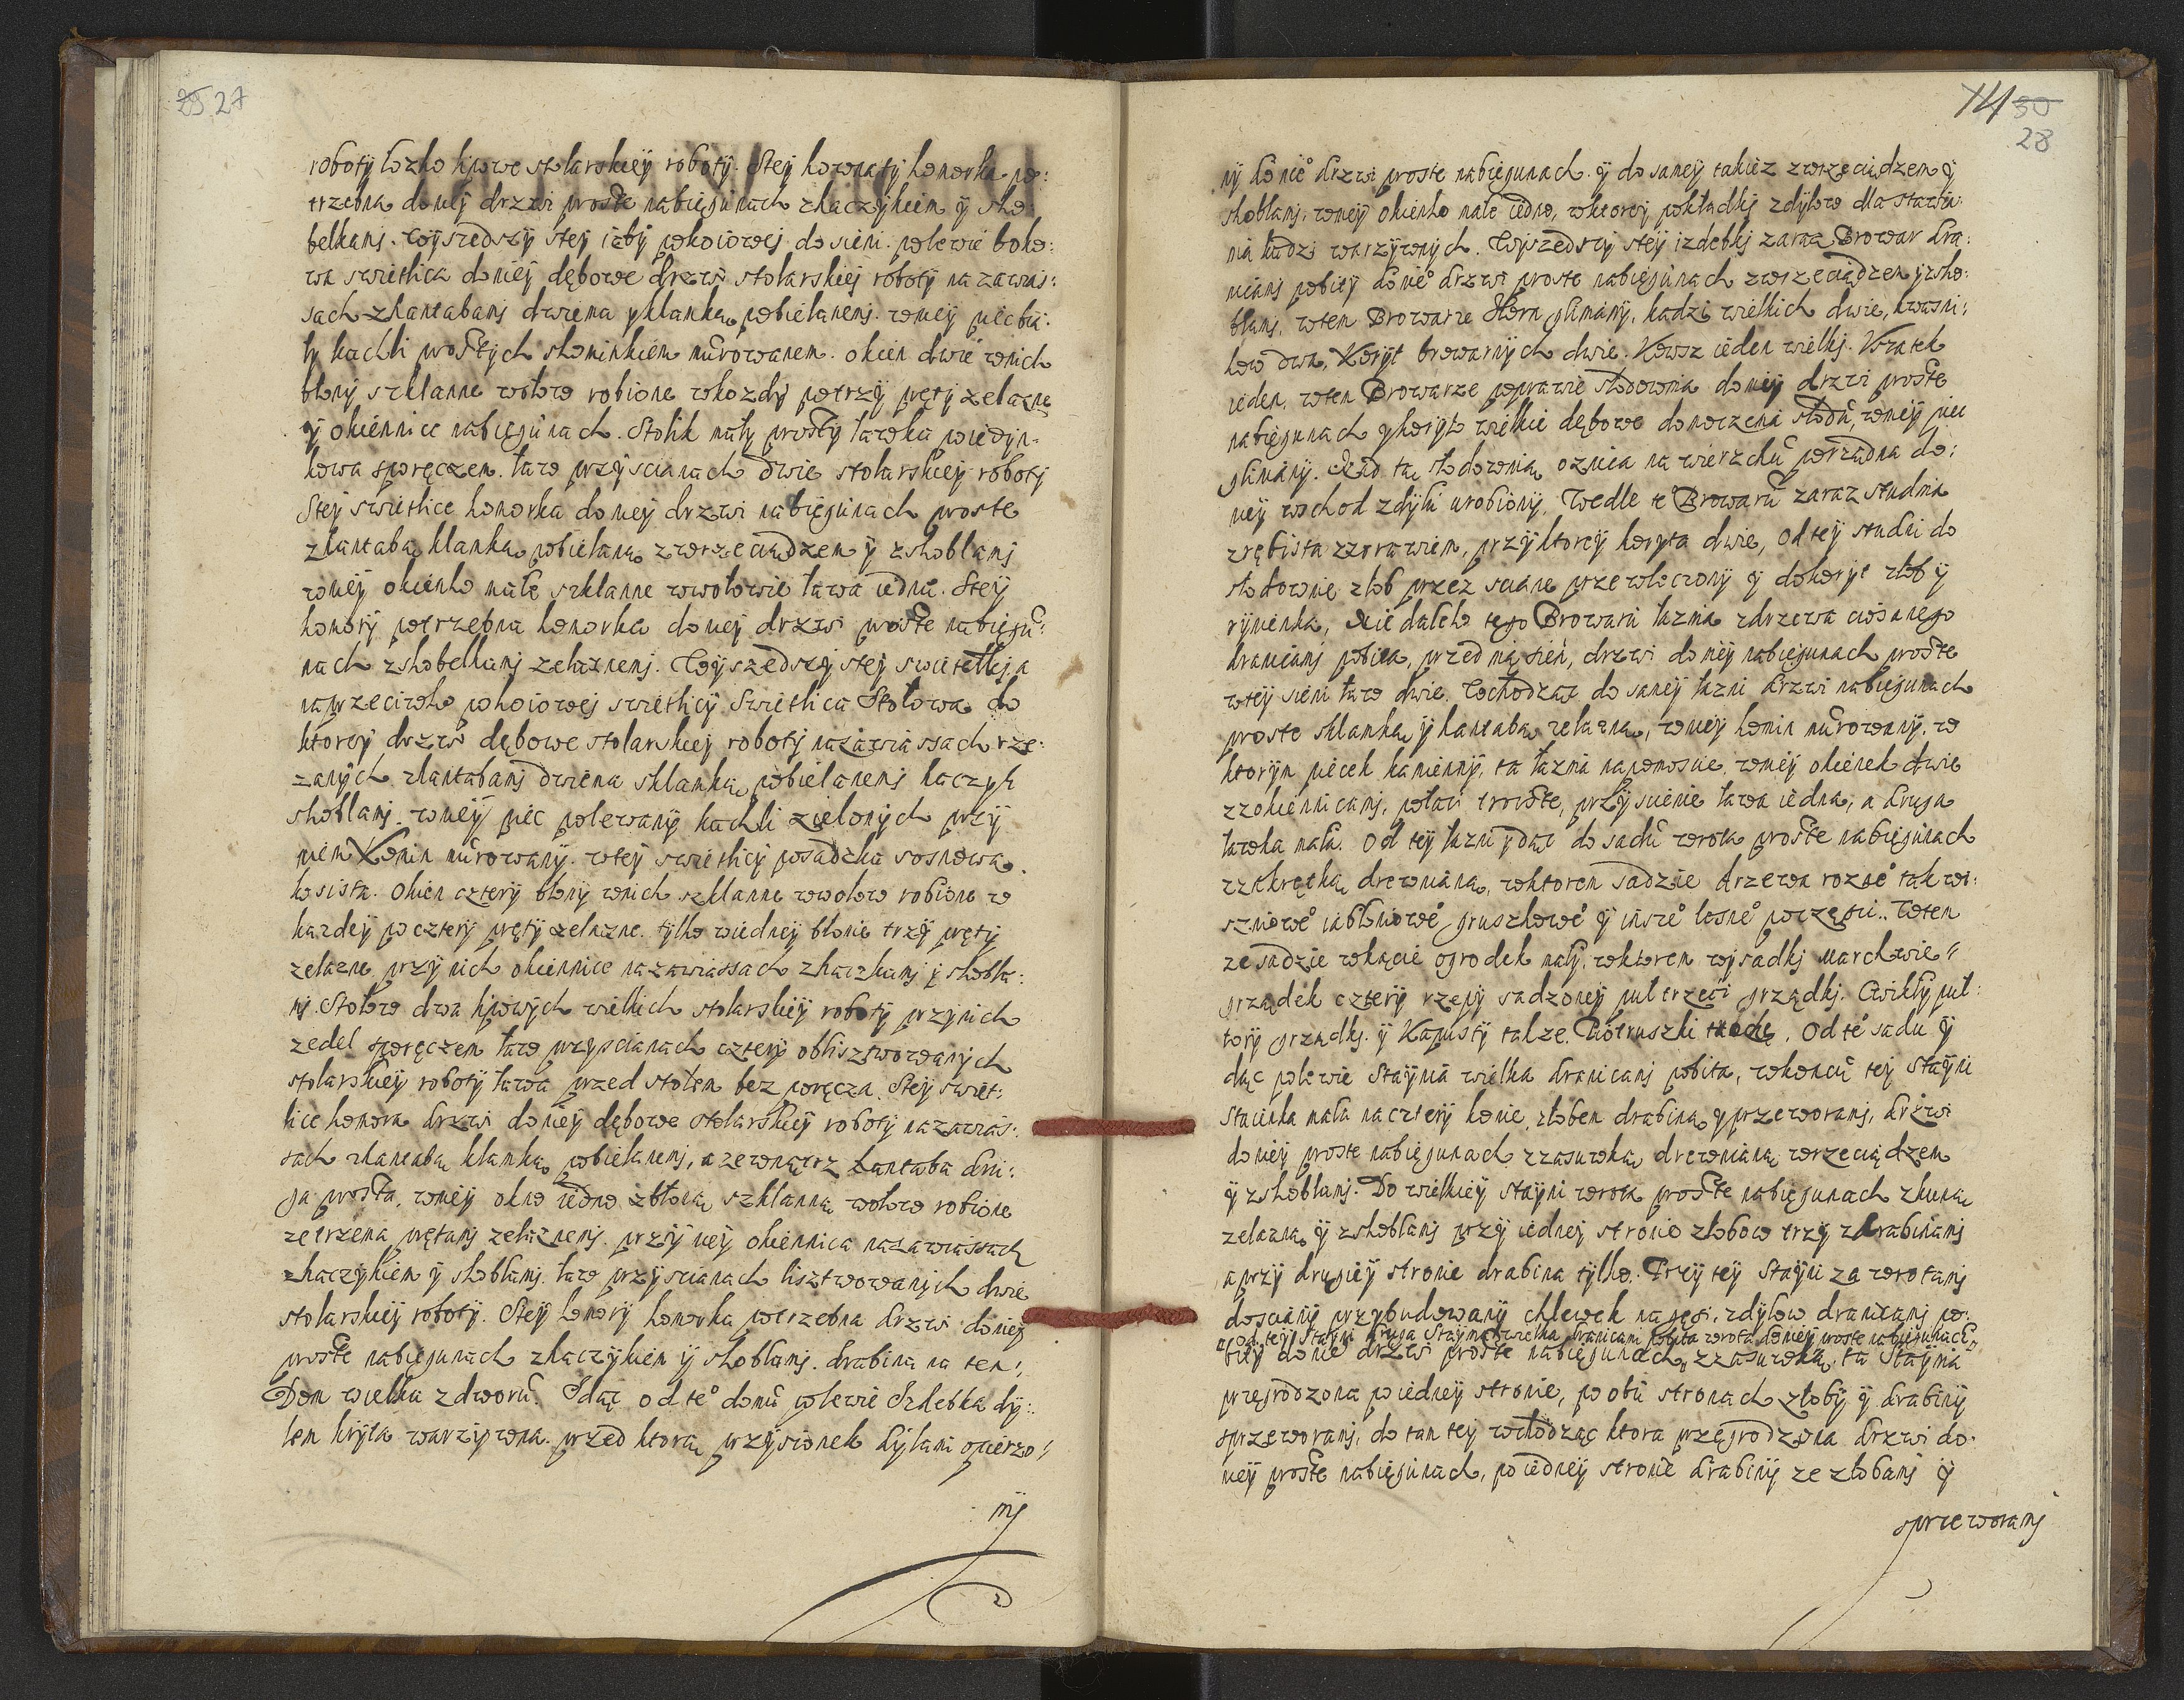 29 27
roboty łozko lipowe stolarskiey roboty. Stey kownaty komorka po:
trzebna do niey drzwi proste nabiegunach zhaczykiem y sko:
belkami. Wyszedszy stey izby pokoiowej do sieni. polewie boko:
wa swietlica do niey dębowe drzwi stolarskiej roboty na zawias:
sach zhantabami dwiema yklamką pobielanemi. wniey piec bia:
ły kachli prostych skominkiem murowanem. okien dwie wnich
błony szklanne wołow robione wkozdy potrzy pręty zelazne
y okiennice nabiegunach. Stolik mały prosty ławka poiedyn:
kowa sporęczem. ław przyscianach dwie stolarskiey roboty
Stey swietlice komorka do niey drzwi nabiegunach proste
zhantabą klamką pobielaną zwrzeciądzem y zskoblami
wniey okienko małe szklanne wwołowie ława iedna. Stey
komory potrzebna komorka do niey drzwi proste nabiegu:
nach zskobelkami zelaznemi. Wyszedszy stey swietelki a
naprzeciwko pokoiowej swietlicy Swietlica Stołowa do
ktorey drzwi dębowe stolarskiej roboty nazawiassach rze:
zanych zhantabami dwiema sklamką pobielanemi haczyk
skoblami. wniey piec polewany kachli zielonych przy
niem Komin murowany. wtey swietlicy posadzka sosnowa.
kosista. Okien cztery błony wnich szklanne wwołow robione w
kazdey po cztery pręty zelazne. tylko wiedney błonie trzy pręty
zelazne. przy nich okiennice nazawiassach zhaczkami y skobla:
mi. Stołow dwa lipowych wielkich stolarskiey roboty przynich
zedel sporęczem ław przyscianach cztery oblisztwowanych
stolarskiey roboty ława przed stołem bez poręcza. Stey swiet:
lice komora drzwi do niey dębowe stolarskiey roboty nazawias:
sach zhantabą klamką pobielanemi, a zewnątrz hantaba dru:
ga prosta. wniey okno iedno zbłoną szklanną wołow robione
zetrzema prętami zelaznemi. przy niey okiennica nazawiassach
zhaczykiem y skoblami. ław przyscianach lisztwowanych dwie
stolarskiey roboty. Stey komory komorka potrzebna drzwi doniey
proste nabiegunach zhaczykiem y skoblami. drabina na ten:
Dom wielka zdworu. Idąc od te° domu polewie Izdebka dy:
lem kryta warzywna. przed ktorą przysionek dylami opierzo:
ny
14 30
28
ny do nie° drzwi proste nabiegunach. y do samey takiez zwrzeciądzem y
skoblami, wniey okienko małe iedno, wktorey pokładki zdylow dla stawia:
nia kadzi warzywnych. Wyszedszy stey izdebki zaraz Browar dra:
nicami pobity do nie° drzwi proste nabiegunach zwrzeciądzem yzsko:
blami, wtem Browarze Horn gliniany, kadzi wielkich dwie, kwasni:
kow dwa, Koryt browarnych dwie. Kowsz ieden wielki. Vszatek
ieden, wtem Browarze poprawie słodownia do niey drzwi proste
nabiegunach ykoryto wielkie dębowe do moczenia słodu, wniey piec
gliniany. Nad tą słodownią oznica na wierzchu porządna do:
niey wschod zdylu urobiony. Wedle te° Browaru zaraz studnia
zrębista zzorawiem, przyktorey koryta dwie, Od tey studni do
słodownie złob przez scianę przewłoczony y dokoryt złob y
rynienka, Niedaleko tego Browaru łaznia zdrzewa ciosanego
dranicami pobita, przed nią sień, drzwi do niey nabiegunach proste
wtey sieni ław dwie. Wchodząc do samey łazni drzwi nabiegunach
proste sklamką yhantabą zelazną, wniey komin murowany. w
ktorym piecek kamienny, ta łaznia napomoscie. wniey okienek dwie
zzokiennicami, połaci troiste, przyscienie ława iedna, a druga
ławka mała. Od tey łazni ydąc do sadu wrota proste nabiegunach
zzakrętką drewnianą, wktorem sadzie drzewa rozne° tak wi:
szniowe° iabłoniowe° gruszkowe° y insze° lesne° poczęsci. Wtem
ze sadzie wkącie ogrodek mały, wktorem wysadki marchwie
grządek cztery rzepy sadzoney puł trzeci grządki. Cwikły puł:
tory grządki. y Kapusty takze. Piotruszki trochę. Od te° sadu y
dąc polewie Staynia wielka dranicami pobita, wkoncu tey Stayni
stacienka mała nacztery konie, złobem drabiną y przeworami, drzwi
do niey proste nabiegunach zzasuwką drewnianą wrzeciądzem
y zskoblami. Do wielkiey stayni wrota proste nabiegunach zkuną
zelazną y zskoblami przy iedney stronie złobow trzy zdrabinami
a przy drugiey stronie drabina tylko. Przy tey Stayni za wrotami
do sciany przybudowany chlewek na gęsi, zdylow dranicami po:
od tey Stayni druga Staynia wielka dranicami pobita wrota do niey proste nabiegunach
bity do nie° drzwi proste nabiegunach, zzasuwką, ta Staynia
przegrodzona poiedney stronie, po obu stronach złoby y drabiny
sprzeworami, do tam tey wchodząc ktora przegrodzona drzwi do:
niey proste nabiegunach, po iedney stronie drabiny ze złobami y
sprzeworami